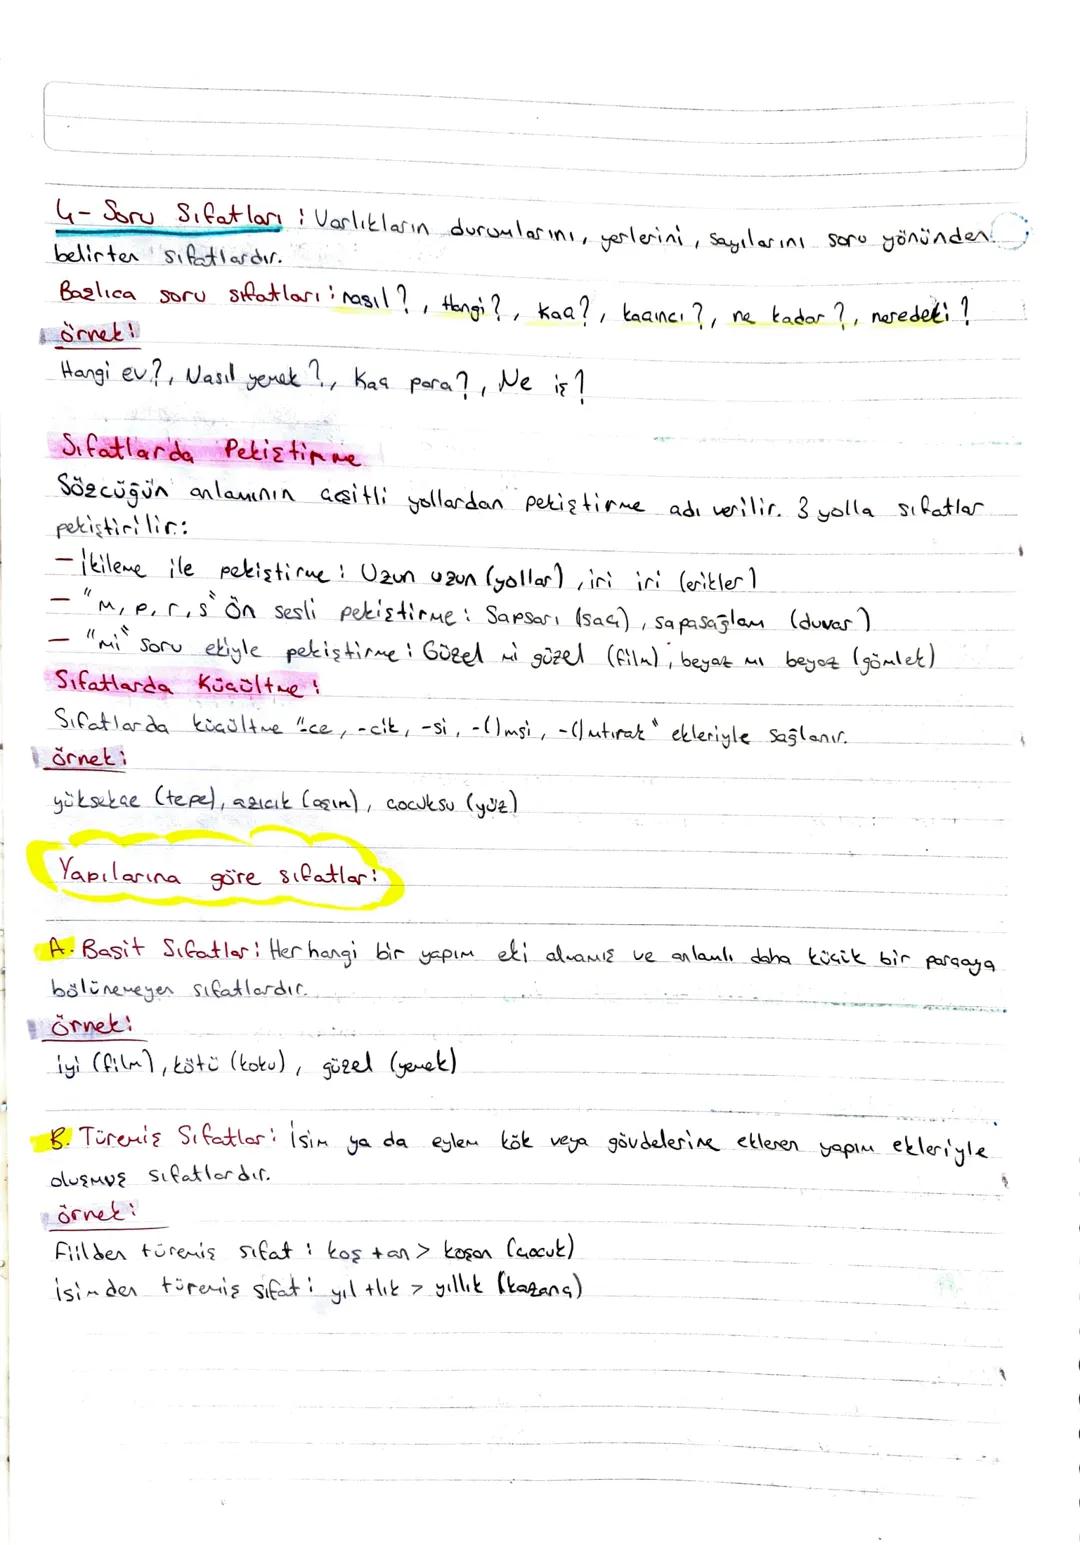 4- Soru Sıfatları : Varlıkların durumlarını, yerlerini, sayılarını soru yönünden
belirten sıfatlardır.
Başlıca soru sıfatları : nasıl?, Hangi?, kaç?, kaçıncı?, ne kadar?, neredeki?
örnek:
Hangi ev?, Nasıl yemek?, Kaç para?, Ne iş?
Sıfatlarda Pekiştirme
Sözcüğün anlamının çeşitli yollardan pekiştirme adı verilir. 3 yolla sıfatlar
pekiştirilir:
- İkileme ile pekiştirme : Uzun uzun (yollar), iri iri (erikler)
- "m, p, r, s" Ön sesli pekiştirme : Sapsarı (saç), sapasağlam (duvar)
- "mi" soru ekiyle pekiştirme : Güzel mi güzel (film), beyaz mı beyaz (gömlek)
Sıfatlarda Küçültme :
Sıfatlarda küçültme "-ce, -cik, -si, -()msi, -()mtırak" ekleriyle sağlanır.
örnek:
yüksekçe (tepe), azıcık (aşım), çocuksu (yüz)
Yapılarına göre sıfatlar:
A. Basit Sıfatlar: Her hangi bir yapım eki almamış ve anlamlı daha küçük bir parçaya
bölünemeyen sıfatlardır.
örnek:
iyi (film), kötü (koku), güzel (yemek)
B. Türemiş Sıfatlar: İsim ya da eylem kök veya gövdelerine eklenen yapım ekleriyle
oluşmuş sıfatlardır.
örnek:
Fiilden türemiş sıfat : koş + an > koşan (çocuk)
İsimden türemiş sıfat : yıl + lık > yıllık (kazanç)